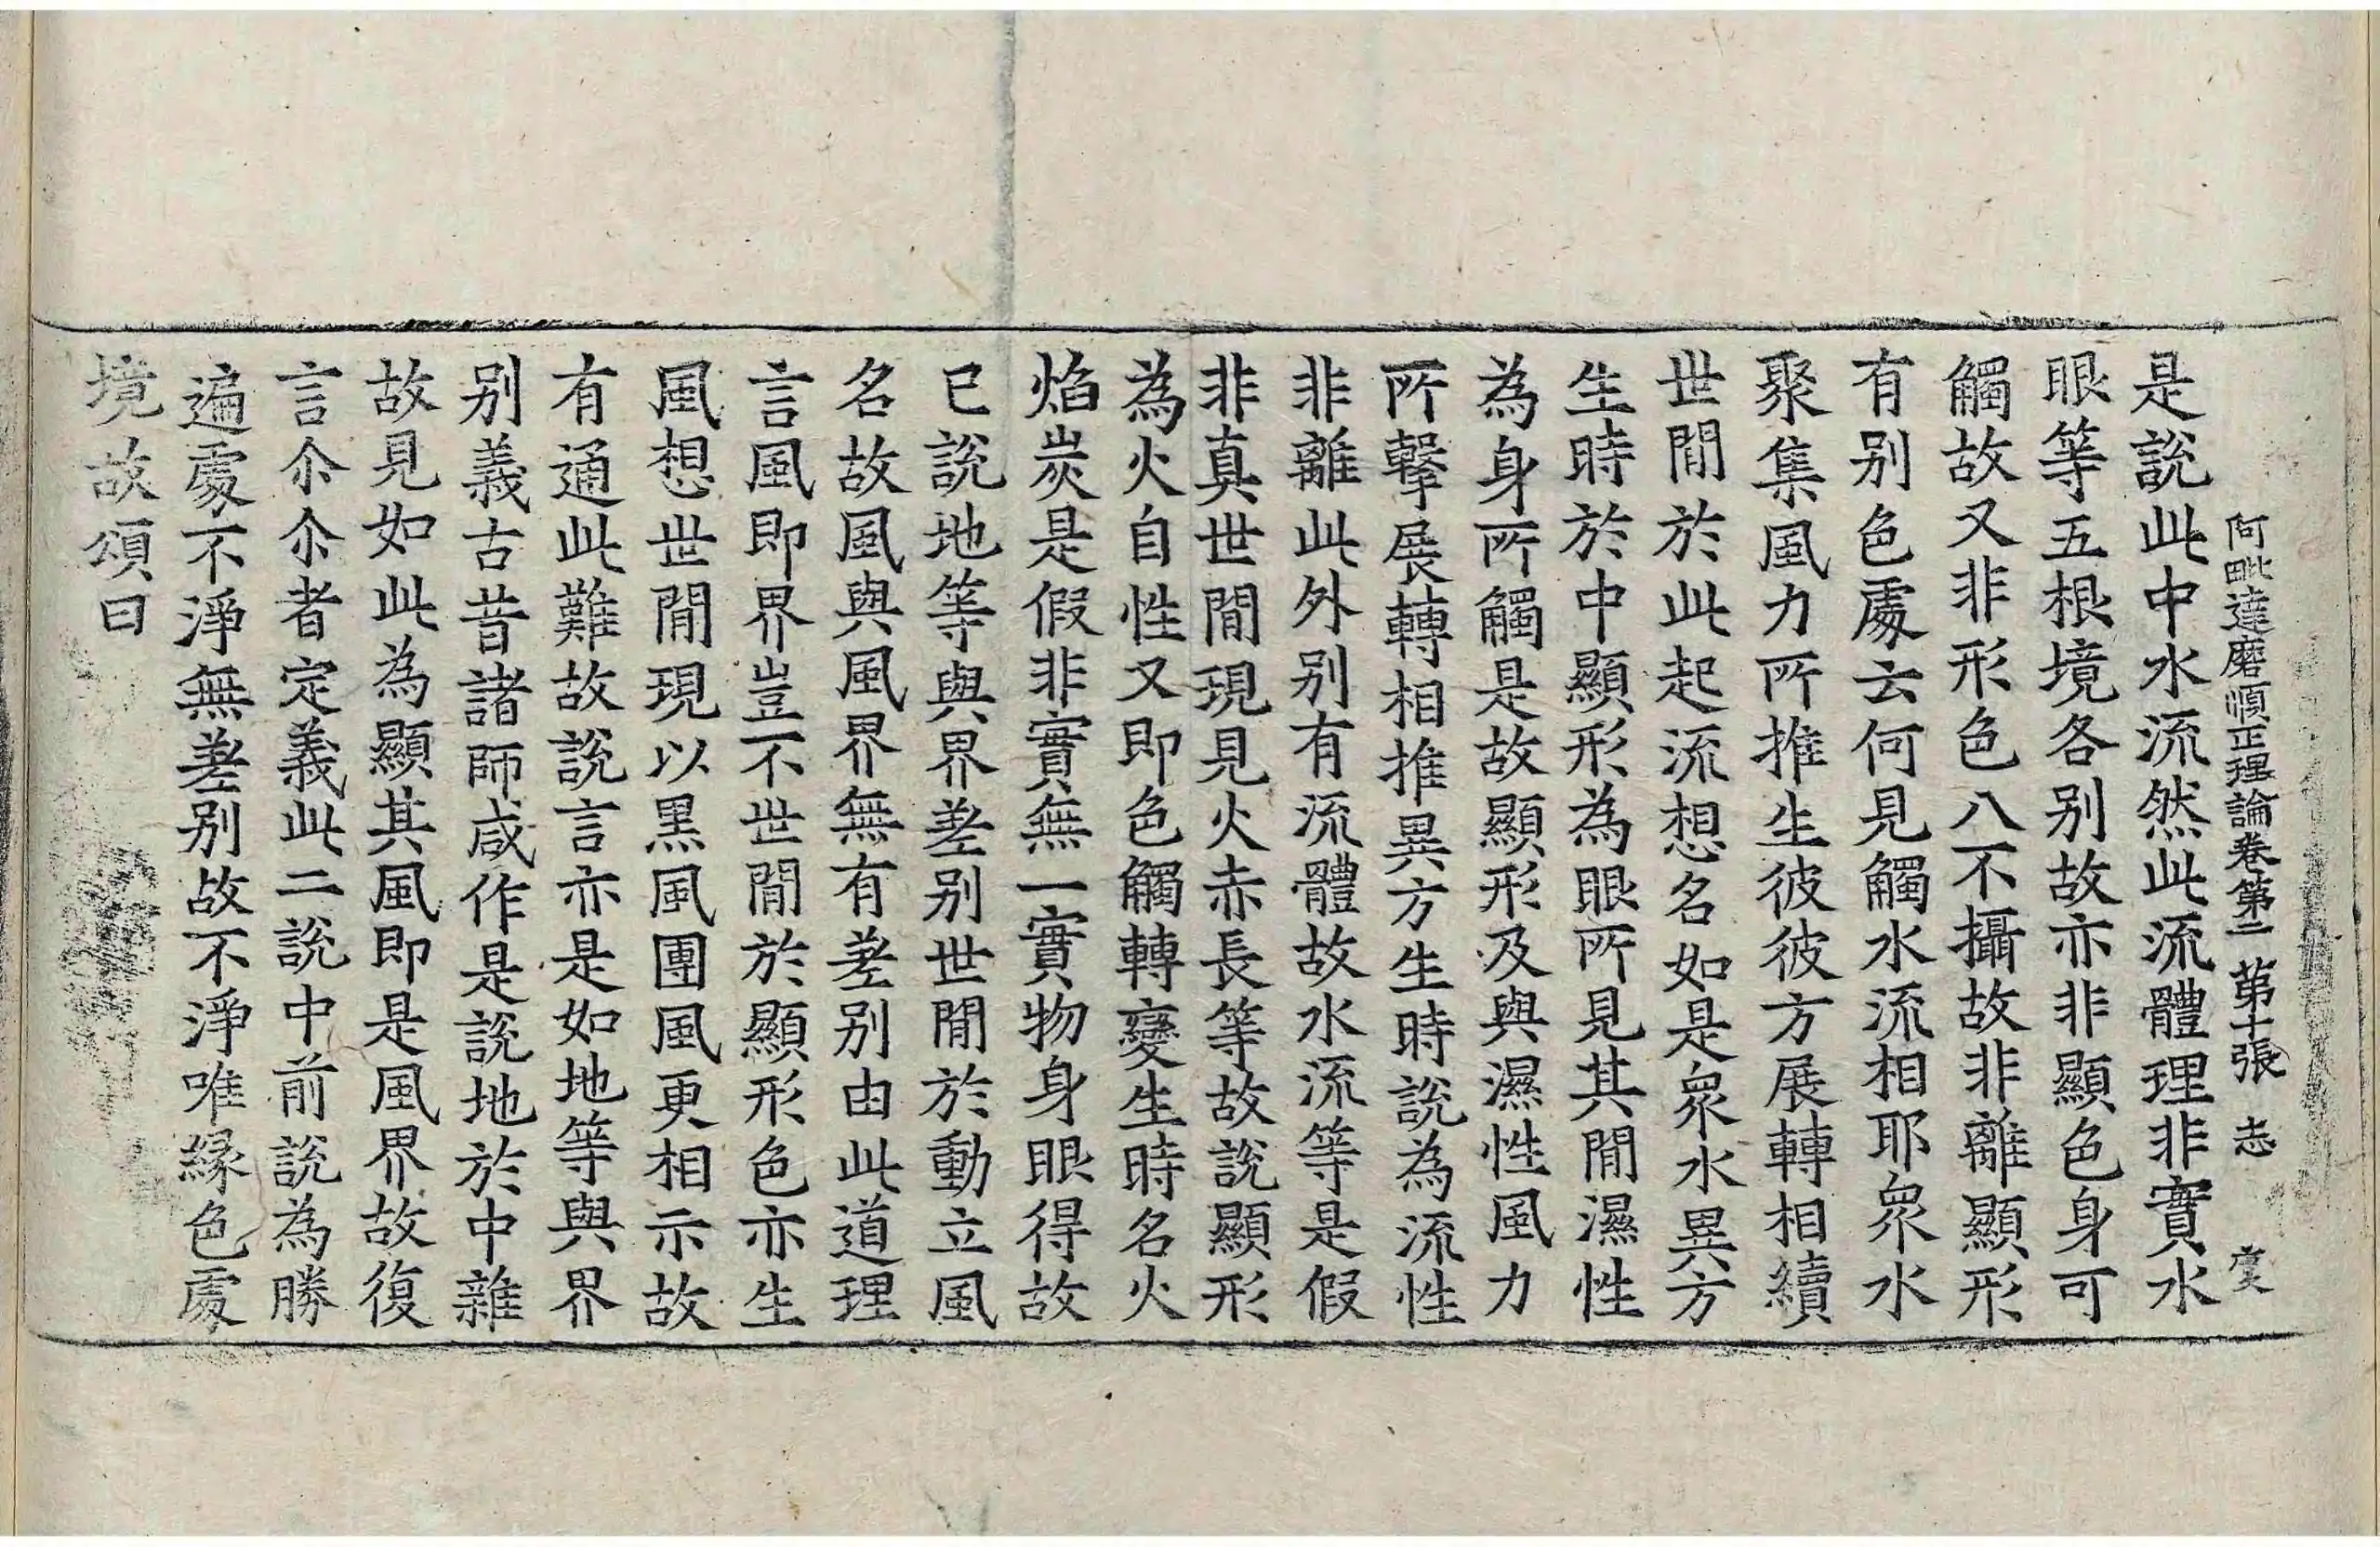 阿毗達磨順正理論卷第二 第十張 志 虔
是說此中水流然此流體理非實水
眼等五根境各別故亦非顯色身可
觸故又非形色八不攝故非離顯形
有別色處云何見觸水流相耶衆水
聚集風力所推生彼彼方展轉相續
世間於此起流想名如是衆水異方
生時於中顯形為眼所見其間濕性
為身所觸是故顯形及與濕性風力
所擊展轉相推異方生時說為流性
非離此外別有流體故水流等是假
非真世間現見火赤長等故說顯形
為火自性又即色觸轉變生時名火
焰炭是假非實無一實物身眼得故
已說地等與界差別世間於動立風
名故風與風界無有差別由此道理
言風即界豈不世間於顯形色亦生
風想世間現以黑風團風更相示故
有通此難故說言亦是如地等與界
別義古昔諸師咸作是說地於中雜
故見如此為顯其風即是風界故復
言尒尒者定義此二說中前說為勝
遍處不淨無差別故不淨唯緣色處
境故頌曰